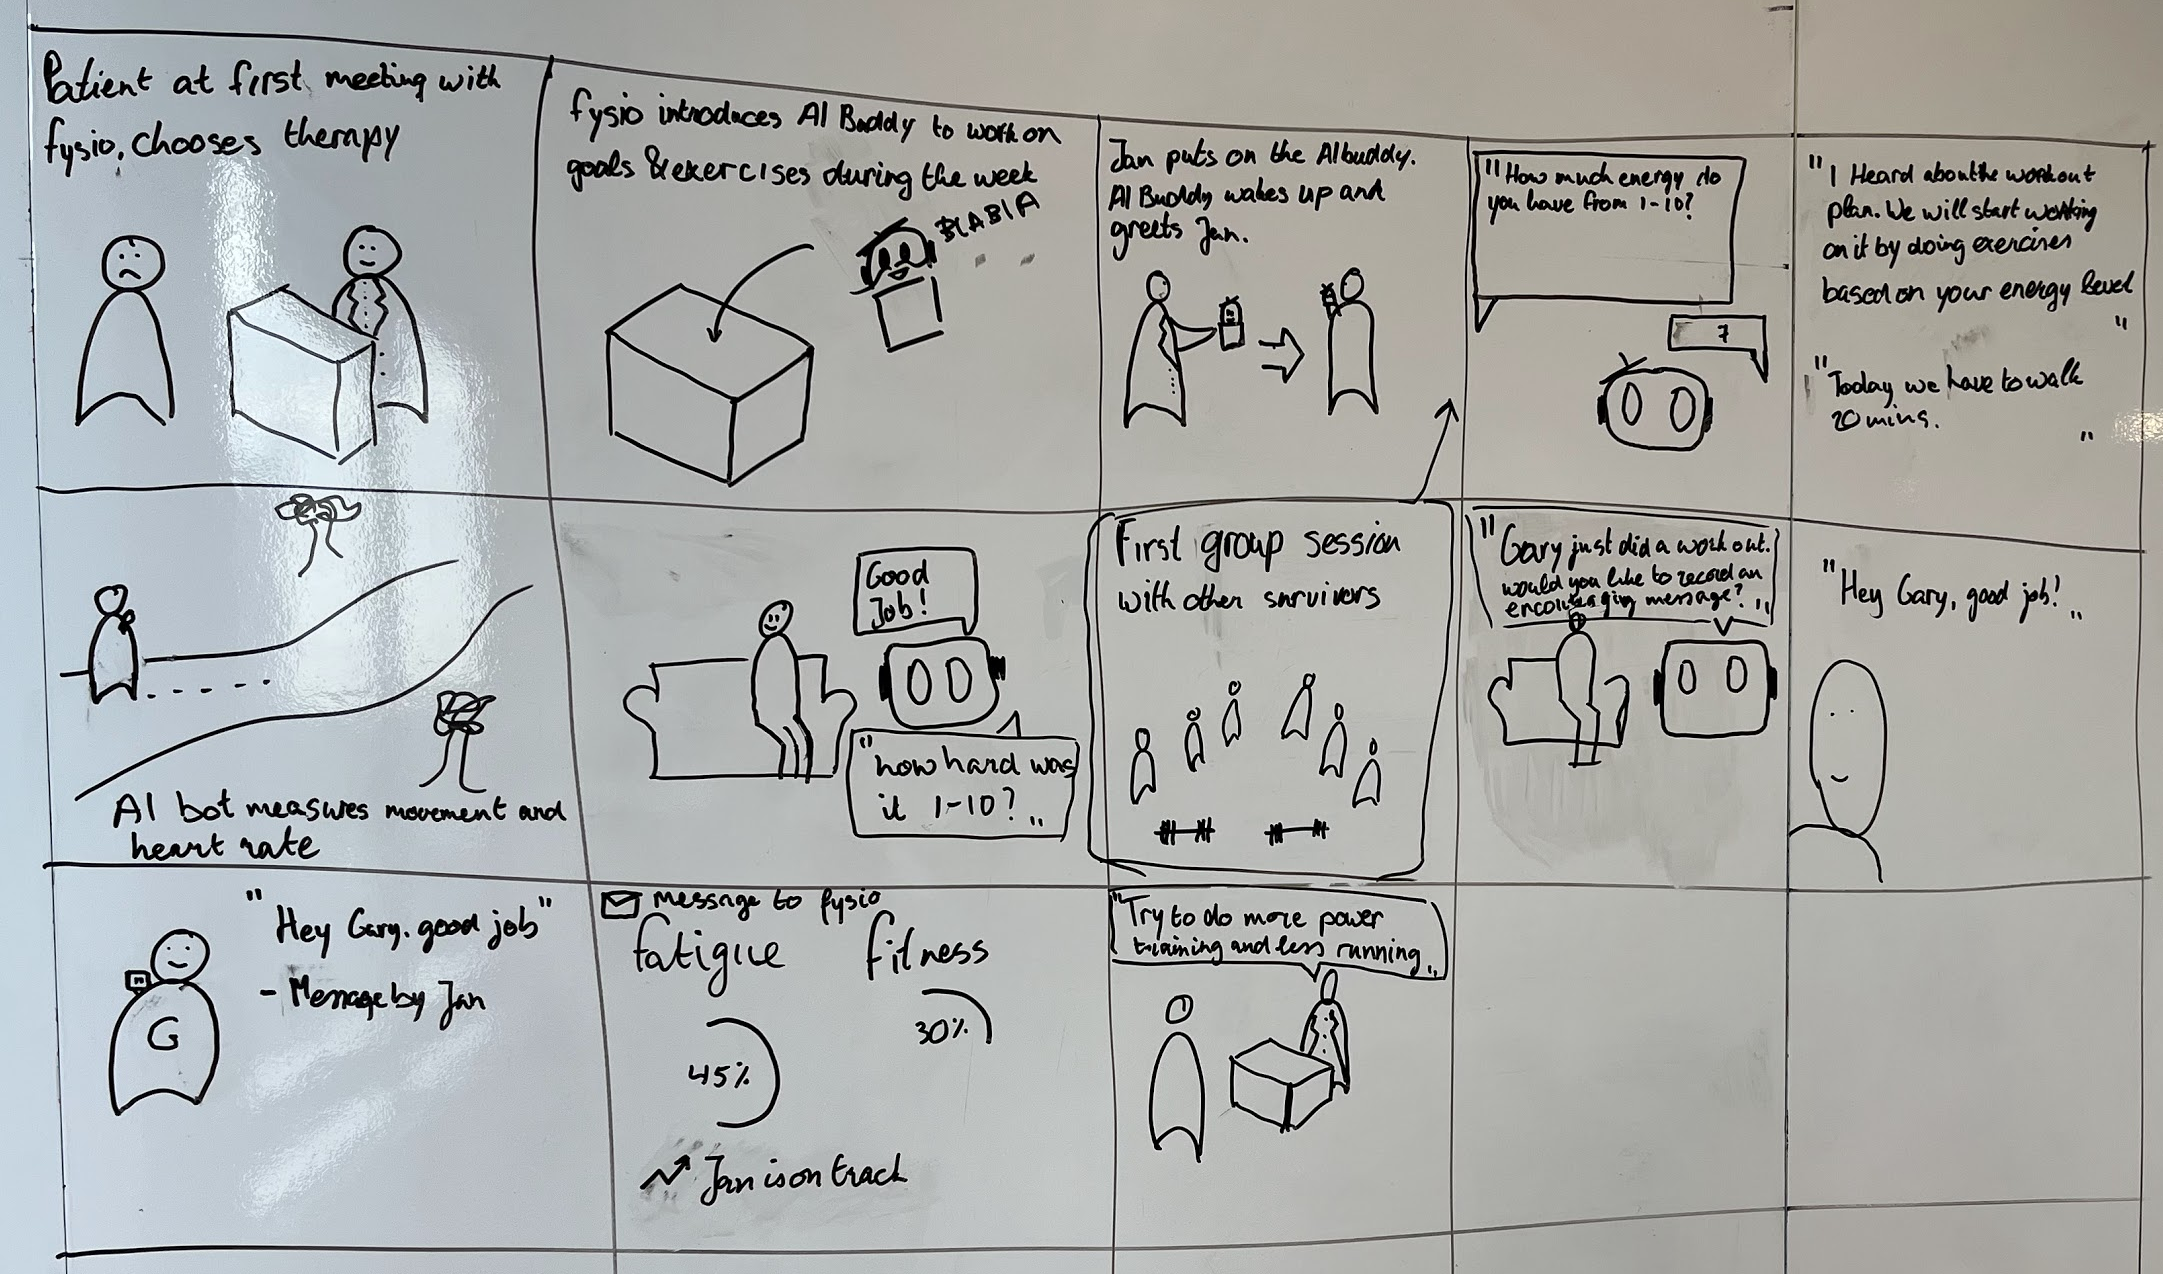 Patient at first meeting with
fysio, chooses therapy
fysio introduces AI Buddy to work on
goals & exercises during the week
BLABLA
Jan puts on the AIbuddy.
AI Buddy wakes up and
greets Jan.
"How much energy do
you have from 1-10?
7
"I Heard about the workout
plan. We will start working
on it by doing exercises
based on your energy level
"
"Today we have to walk
20 mins.
"
AI bot measures movement and
heart rate
Good
Job!
"how hard was
it 1-10?"
First group session
with other survivors
"Gary just did a work out.
would you like to record an
encouraging message?"
"Hey Gary, good job!"
"Hey Gary. good job"
- Message by Jan
G
message to fysio
fatigue
fitness
45%
30%
Jan is on track
"Try to do more power
training and less running"